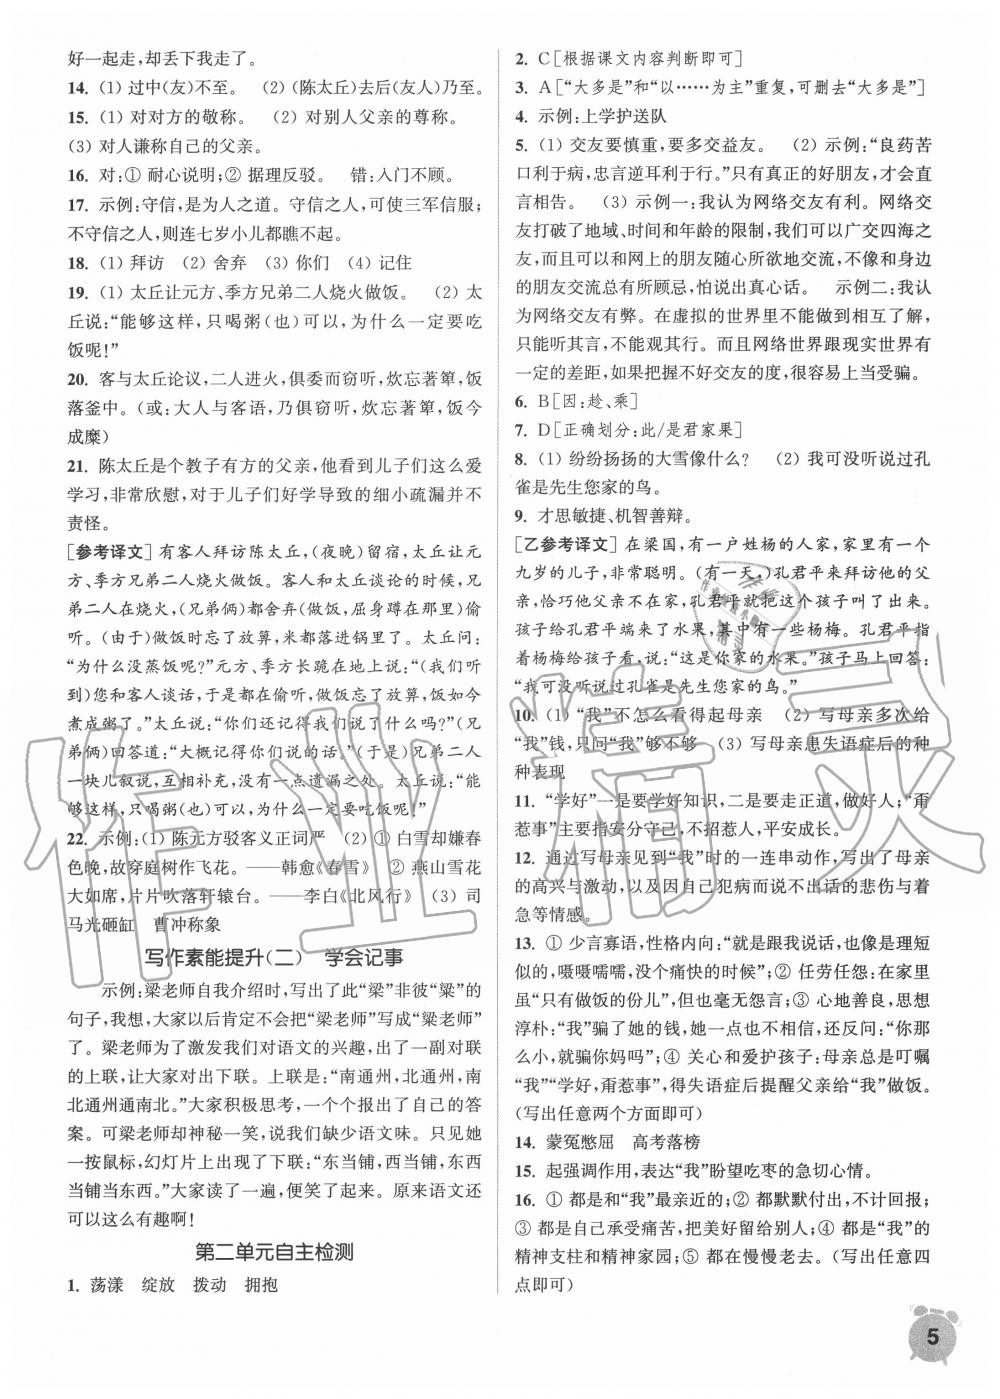 好一起走,却丢下我走了。
14. (1) 过中(友)不至。 (2) (陈太丘)去后(友人)乃至。
15. (1) 对对方的敬称。 (2) 对别人父亲的尊称。
(3) 对人谦称自己的父亲。
16. 对:① 耐心说明;② 据理反驳。 错:入门不顾。
17. 示例:守信,是为人之道。守信之人,可使三军信服;
不守信之人,则连七岁小儿都瞧不起。
18. (1) 拜访 (2) 舍弃 (3) 你们 (4) 记住
19. (1) 太丘让元方、季方兄弟二人烧火做饭。 (2) 太
丘说:“能够这样,只喝粥(也)可以,为什么一定要吃
饭呢!”
20. 客与太丘论议,二人进火,俱委而窃听,炊忘著箄,饭
落釜中。(或:大人与客语,乃俱窃听,炊忘著箄,饭今
成糜)
21. 陈太丘是个教子有方的父亲,他看到儿子们这么爱
学习,非常欣慰,对于儿子们好学导致的细小疏漏并不
责怪。
[参考译文] 有客人拜访陈太丘,(夜晚)留宿,太丘让元
方、季方兄弟二人烧火做饭。客人和太丘谈论的时候,兄
弟二人在烧火,(兄弟俩)都舍弃(做饭,屈身蹲在那里)偷
听。(由于)做饭时忘记了放箅,米都落进锅里了。太丘问:
“为什么没蒸饭呢?”元方、季方长跪在地上说:“(我们听
到)您和客人谈话,于是都在偷听,做饭忘记了放箅,饭如今
煮成粥了。”太丘说:“你们还记得我们说了些什么吗?”(兄
弟俩)回答道:“大概记得你们说的话。”(于是)兄弟二人
一块儿叙说,互相补充,没有一点遗漏之处。太丘说:“能
够这样,只喝粥(也)可以,为什么一定要吃饭呢!”
22. 示例:(1) 陈元方驳客义正词严 (2) ① 白雪却嫌春
色晚,故穿庭树作飞花。——韩愈《春雪》 ② 燕山雪花
大如席,片片吹落轩辕台。——李白《北风行》 (3) 司
马光砸缸 曹冲称象
写作素能提升(二) 学会记事
示例:梁老师自我介绍时,写出了此“梁”非彼“粱”的
句子,我想,大家以后肯定不会把“梁老师”写成“粱老师”
了。梁老师为了激发我们对语文的兴趣,出了一副对联
的上联,让大家对出下联。上联是:“南通州,北通州,南
北通州通南北。”大家积极思考,一个个报出了自己的答
案。可梁老师却神秘一笑,说我们缺少语文味。只见她
一按鼠标,幻灯片上出现了下联:“东当铺,西当铺,东西
当铺当东西。”大家读了一遍,便笑了起来。原来语文还
可以这么有趣啊!
第二单元自主检测
1. 荡漾 绽放 拨动 拥抱
2. C[根据课文内容判断即可]
3. A[“大多是”和“以……为主”重复,可删去“大多是”]
4. 示例:上学护送队
5. (1) 交友要慎重,要多交益友。 (2) 示例:“良药苦
口利于病,忠言逆耳利于行。”只有真正的好朋友,才会直
言相告。 (3) 示例一:我认为网络交友有利。网络交
友打破了地域、时间和年龄的限制,我们可以广交四海之
友,而且可以和网上的朋友随心所欲地交流,不像和身边
的朋友交流总有所顾忌,怕说出真心话。 示例二:我认
为网络交友有弊。在虚拟的世界里不能做到相互了解,
只能听其言,不能观其行。而且网络世界跟现实世界有
一定的差距,如果把握不好交友的度,很容易上当受骗。
6. B[因:趁、乘]
7. D[正确划分:此/是君家果]
8. (1) 纷纷扬扬的大雪像什么? (2) 我可没听说过孔
雀是先生您家的鸟。
9. 才思敏捷、机智善辩。
[乙参考译文] 在梁国,有一户姓杨的人家,家里有一个
九岁的儿子,非常聪明。(有一天,)孔君平来拜访他的父
亲,恰巧他父亲不在家,孔君平就把这个孩子叫了出来。
孩子给孔君平端来了水果,其中有一些杨梅。孔君平指
着杨梅给孩子看,说:“这是你家的水果。”孩子马上回答:
“我可没听说过孔雀是先生您家的鸟。”
10. (1) “我”不怎么看得起母亲 (2) 写母亲多次给
“我”钱,只问“我”够不够 (3) 写母亲患失语症后的种
种表现
11. “学好”一是要学好知识,二是要走正道,做好人。“甭
惹事”主要指安分守己,不招惹人,平安成长。
12. 通过写母亲见到“我”时的一连串动作,写出了母亲
的高兴与激动,以及因自己犯病而说不出话的悲伤与着
急等情感。
13. ① 少言寡语,性格内向:“就是跟我说话,也像是理短
似的,嗫嗫嚅嚅,没个痛快的时候”;② 任劳任怨:在家里
虽“只有做饭的份儿”,但也毫无怨言;③ 心地善良,思想
淳朴:“我”骗了她的钱,她一点也不相信,还反问:“你那
么小,就骗你妈吗”;④ 关心和爱护孩子:母亲总是叮嘱
“我”“学好,甭惹事”,得失语症后提醒父亲给“我”做饭。
(写出任意两个方面即可)
14. 蒙冤憋屈 高考落榜
15. 起强调作用,表达“我”盼望吃枣的急切心情。
16. ① 都是和“我”最亲近的;② 都默默付出,不计回报;
③ 都是自己承受痛苦,把美好留给别人;④ 都是“我”的
精神支柱和精神家园;⑤ 都在慢慢老去。(写出任意四
点即可)
5
作业精灵